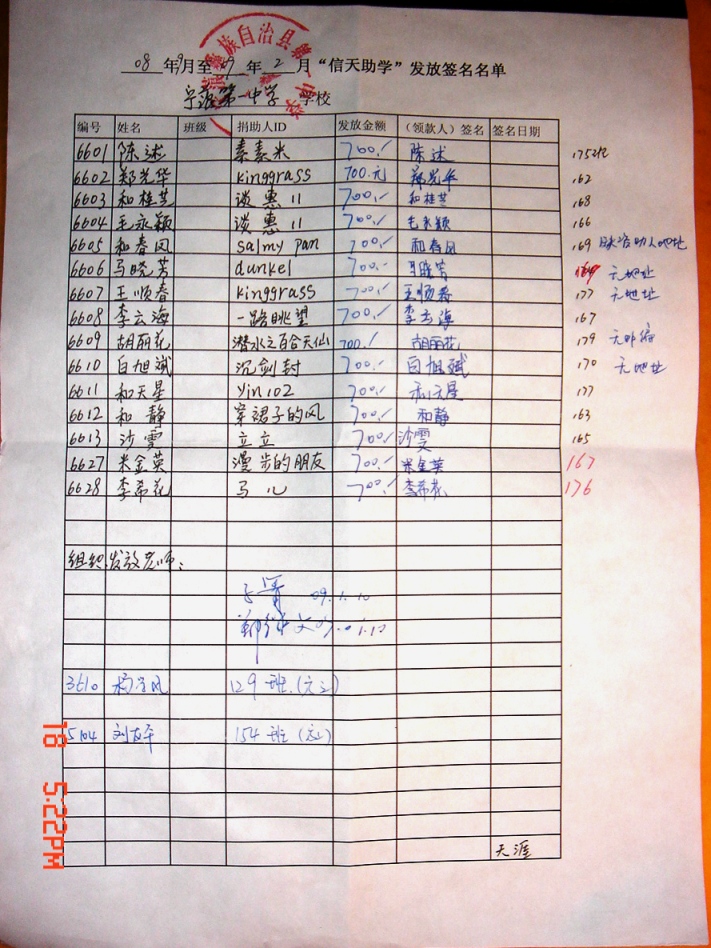 族自治县第一中学
08 年9月至09 年 2 月“信天助学”发放签名名单
宁蒗第一中学 学校
编号 姓名 班级 捐助人ID 发放金额 （领款人）签名 签名日期
6601 陈述 素素米 700./ 陈述 175
6602 郑光华 kinggrass 700.元 郑光华 162
6603 和桂芝 谈惠11 700./ 和桂芝 168
6604 毛永颖 谈惠11 700./ 毛永颖 166
6605 和春凤 salmy pan 700./ 和春凤 169 缺资助人地址
6606 马晓芳 dunkel 700.- 马晓芳 164 无地址
6607 王顺春 kinggrass 700./ 王顺春 177 无地址
6608 李云海 一路眺望 700./ 李云海 167
6609 胡丽花 潜水之百合天仙 700./ 胡丽花 179 无邮编
6610 白旭斌 沉剑封 700./ 白旭斌 170 无地址
6611 和天星 Yin102 700./ 和天星 177
6612 和静 穿裙子的风 700./ 和静 163
6613 沙雯 立立 700./ 沙雯 165
6627 米金英 漫步的朋友 700./ 米金英 167
6628 李希花 马儿 700./ 李希花 176
组织发放老师：
09.1.10
09.01.10
3610 杨学凤 129班.
5104 154班
天涯
18 5:22PM